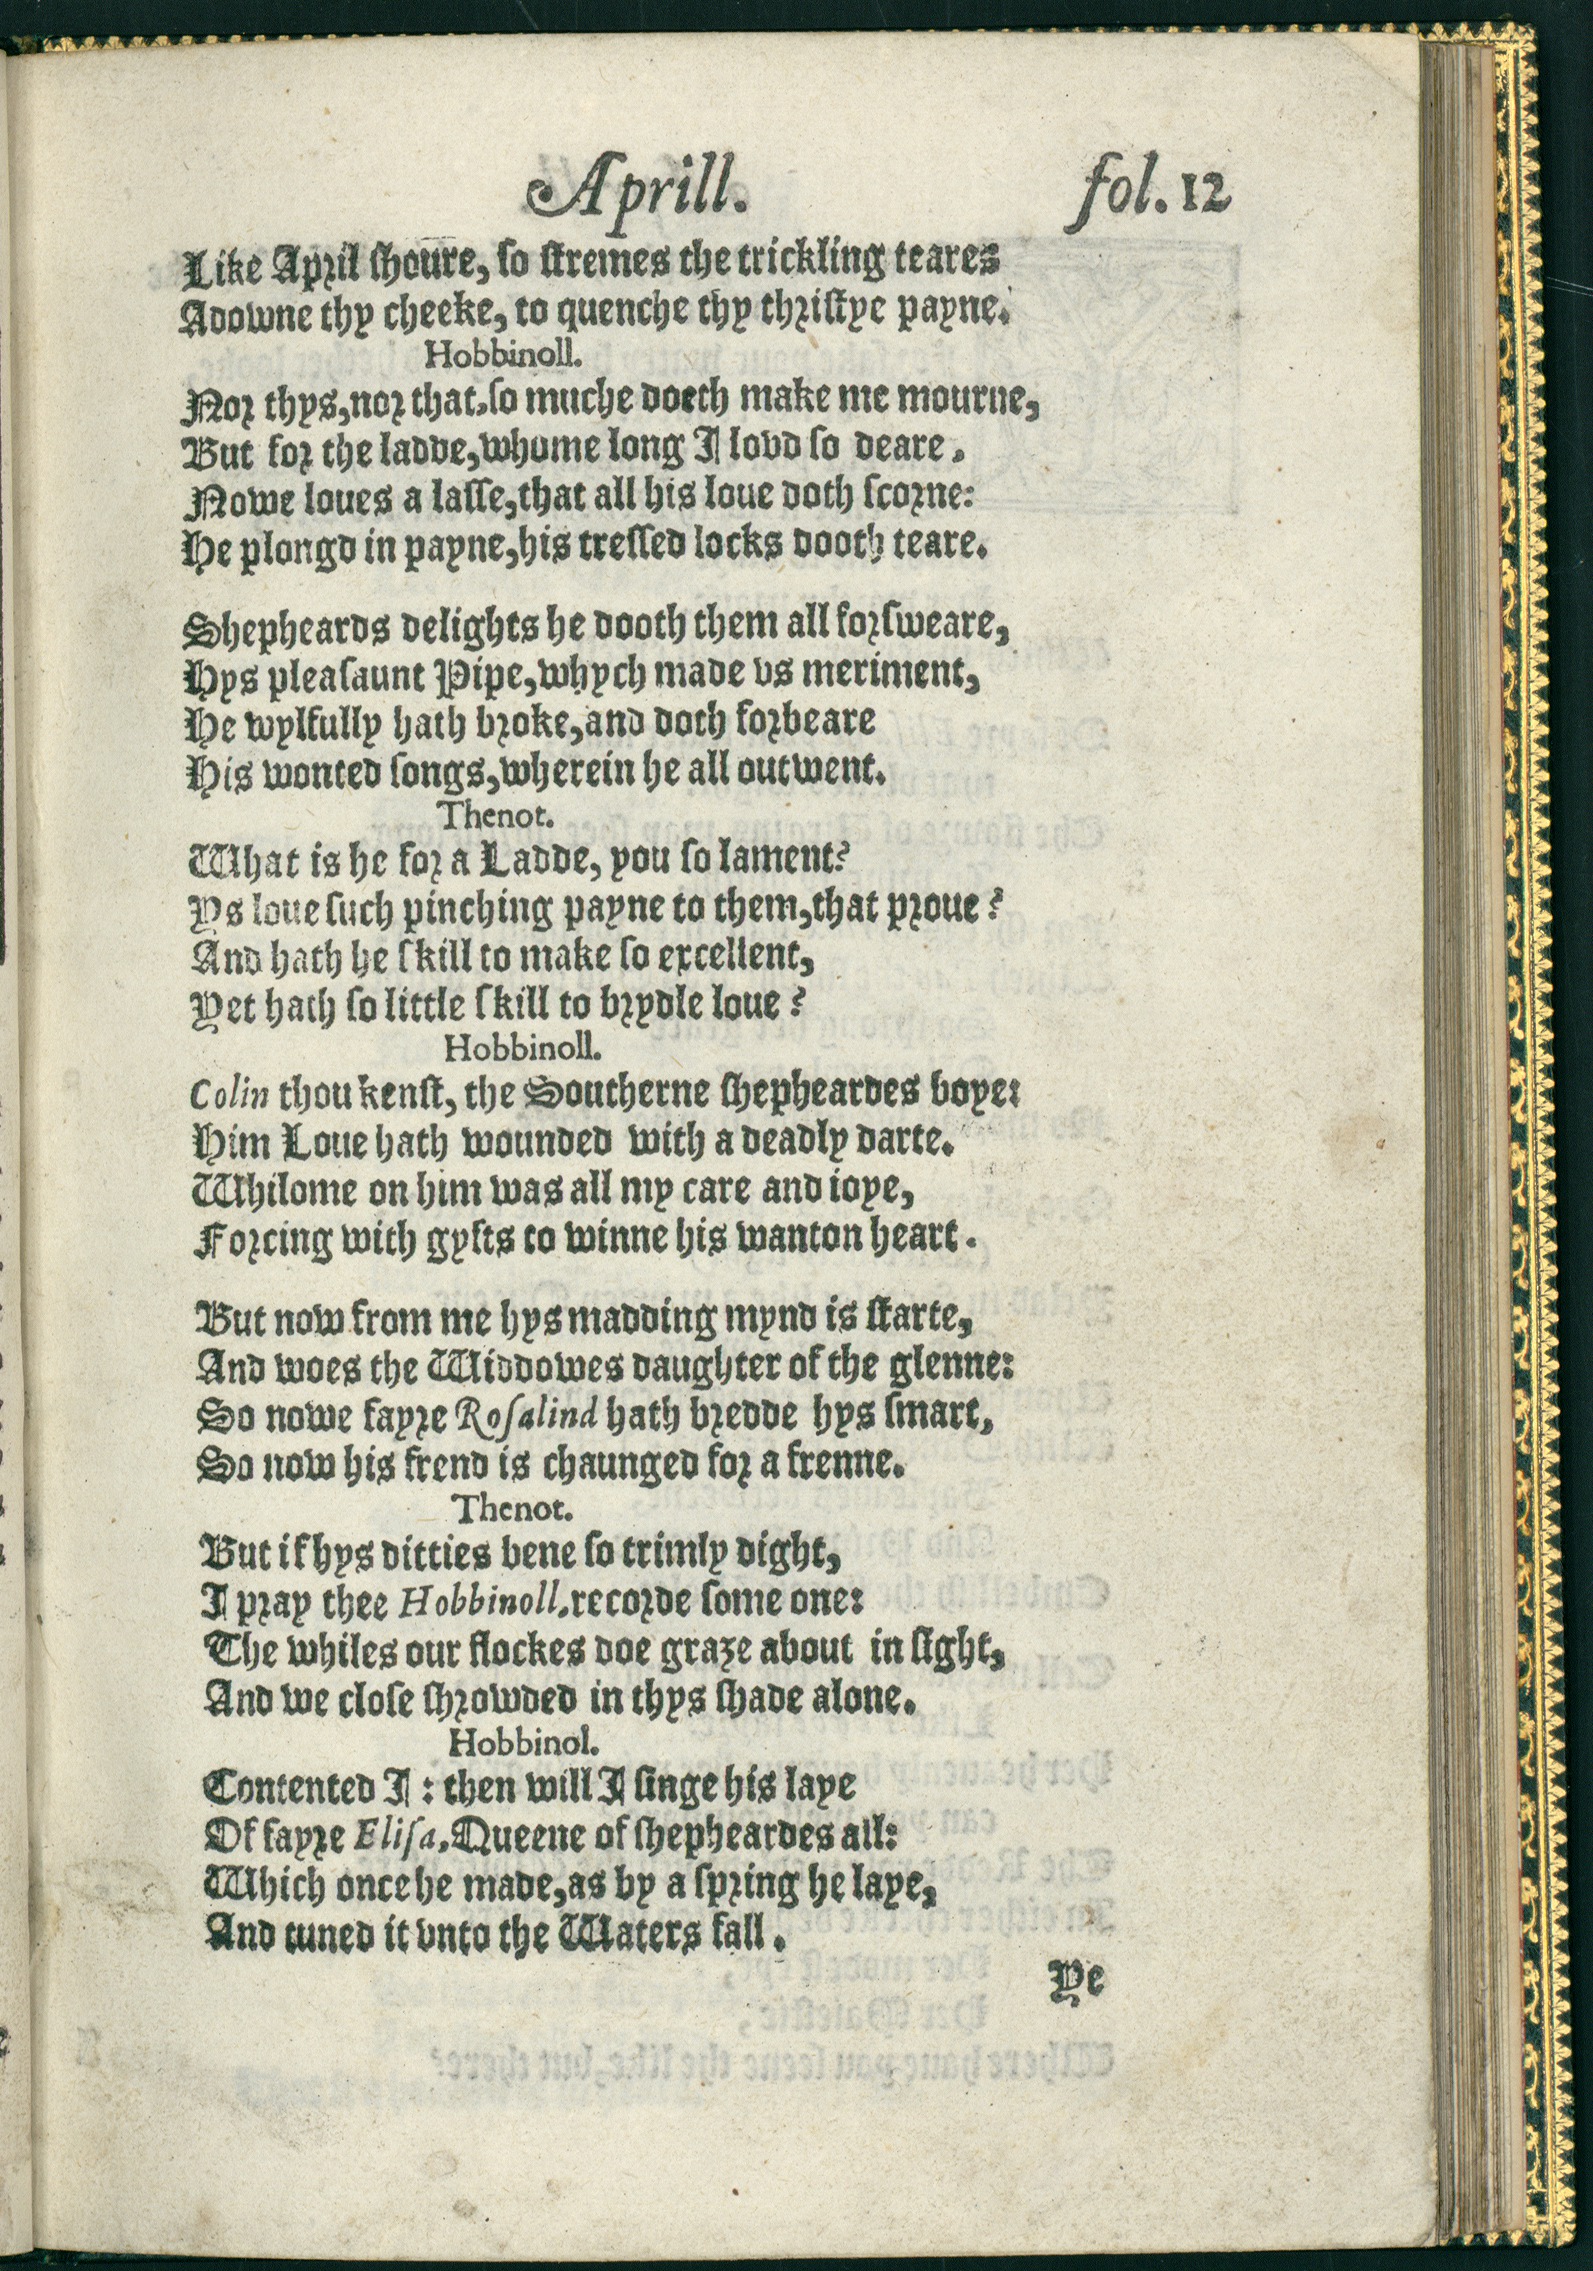 Aprill. fol. 12
Like April ſhoure, ſo ſtremes the trickling teares
Adowne thy cheeke, to quenche thy thriſtye payne.
Hobbinoll.
Nor thys, nor that, ſo muche doeth make me mourne,
But for the ladde, whome long I lovd ſo deare,
Nowe loues a laſſe, that all his loue doth ſcorne:
He plongd in payne, his treſſed locks dooth teare.
Shepheards delights he dooth them all forſweare,
Hys pleaſaunt Pipe, whych made vs meriment,
He wylfully hath broke, and doth forbeare
His wonted ſongs, wherein he all outwent.
Thenot.
What is he for a Ladde, you ſo lament?
Ys loue ſuch pinching payne to them, that proue?
And hath he ſkill to make ſo excellent,
Yet hath ſo little ſkill to brydle loue?
Hobbinoll.
Colin thou kenſt, the Southerne ſhepheardes boye:
Him Loue hath wounded with a deadly darte.
Whilome on him was all my care and ioye,
Forcing with gyfts to winne his wanton heart.
But now from me hys madding mynd is ſtarte,
And woes the Widdowes daughter of the glenne:
So nowe fayre Roſalind hath bredde hys ſmart,
So now his frend is chaunged for a frenne.
Thenot.
But if hys ditties bene ſo trimly dight,
I pray thee Hobbinoll, recorde ſome one:
The whiles our flockes doe graze about in ſight,
And we cloſe ſhrowded in thys ſhade alone.
Hobbinol.
Contented I: then will I ſinge his laye
Of fayre Eliſa, Queene of ſhepheardes all:
Which once he made, as by a ſpring he laye,
And tuned it vnto the Waters fall.
Ye